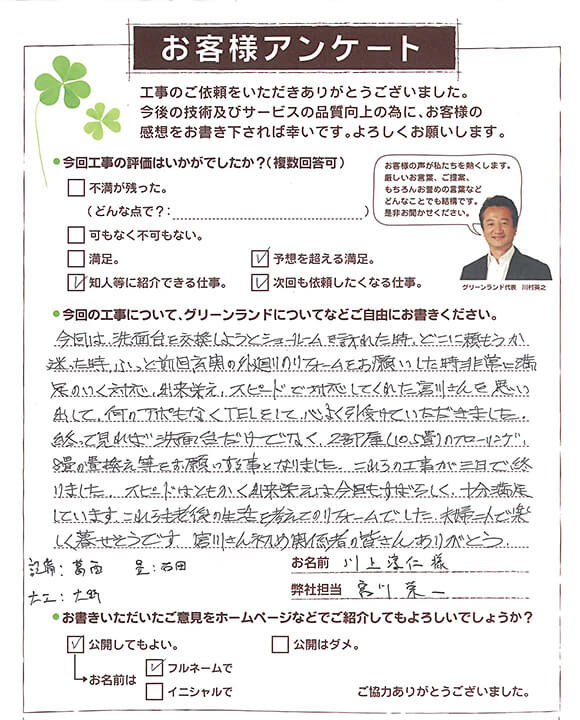 お客様アンケート
工事のご依頼をいただきありがとうございました。
今後の技術及びサービスの品質向上の為に、お客様の
感想をお書き下されば幸いです。よろしくお願いします。
●今回工事の評価はいかがでしたか？（複数回答可）
□ 不満が残った。
（どんな点で？：　）
□ 可もなく不可もない。
□ 満足。
☑ 予想を超える満足。
☑ 知人等に紹介できる仕事。
☑ 次回も依頼したくなる仕事。
お客様の声が私たちを熱くします。
厳しいお言葉、ご提案、
もちろんお誉めの言葉など
どんなことでも結構です。
是非お聞かせください。
グリーンランド代表　川村英之
●今回の工事について、グリーンランドについてなどご自由にお書きください。
今回は、洗面台を交換しようとショールームを訪れた時、どこに頼もうか
迷った時、ふっと前回玄関の外廻りのリフォームをお願いした時非常に満
足のいく対応、出来栄え、スピードで対応してくれた宮川さんを思い
出して、何のアポもなくTELをして、心よく引受けていただきました。
終って見れば洗面台だけでなく、2部屋(10.5畳)のフローリング、
8畳の畳換え等をお願いする事となりました。これらの工事が三日で終
りました。スピードはともかく出来栄えは今回もすばらしく、十分満足
しています。これらも老後の生活を考えてのリフォームでした。夫婦二人で楽
しく暮せそうです。宮川さん初め関係者の皆さんありがとう。
葛西　畳：石田
大工：大
お名前　川上淳仁 様
弊社担当　宮川 栄一
●お書きいただいたご意見をホームページなどでご紹介してもよろしいでしょうか？
☑ 公開してもよい。
□ 公開はダメ。
お名前は
☑ フルネームで
□ イニシャルで
ご協力ありがとうございました。